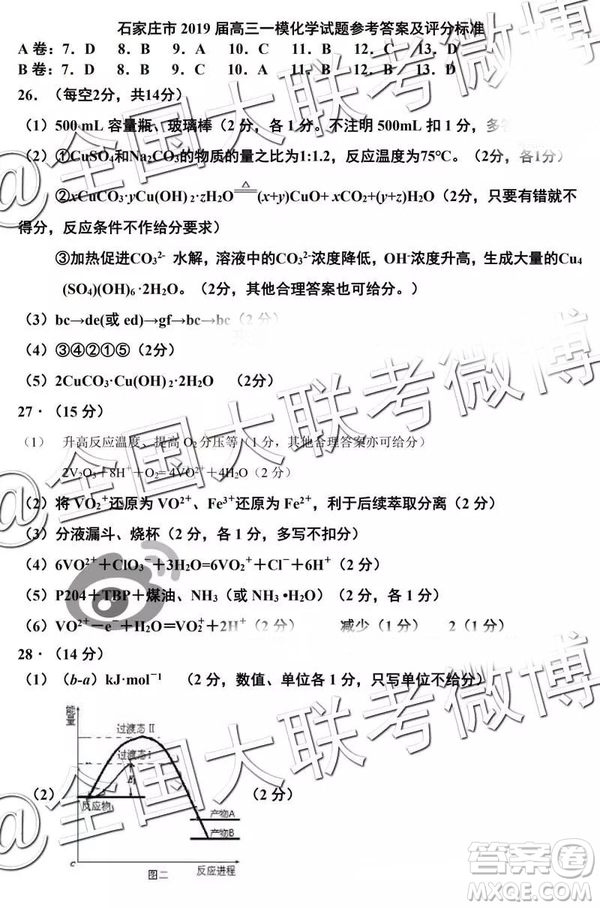 石家庄市 2019 届高三一模化学试题参考答案及评分标准
A 卷：7．D 8．B 9．C 10．A 11．B 12．C 13．D
B 卷：7．D 8．B 9．C 10．A 11．B 12．C 13．D
26．（每空2分，共14分）
（1）500 mL 容量瓶、玻璃棒（2 分，各 1 分。不注明 500mL 扣 1 分，多
（2）①CuSO4和Na2CO3的物质的量之比为1:1.2，反应温度为75℃。（2分，各1分）
②xCuCO3·yCu(OH)2·zH2O △ (x+y)CuO+ xCO2+(y+z)H2O（2 分，只要有错就不
得分，反应条件不作给分要求）
③加热促进CO3²⁻ 水解，溶液中的CO3²⁻浓度降低，OH⁻浓度升高，生成大量的Cu4
(SO4)(OH)6·2H2O。（2分，其他合理答案也可给分。）
（3）bc→de(或 ed)→gf→bc（2 分）
（4）③④②①⑤（2分）
（5）2CuCO3·Cu(OH)2·2H2O （2分）
27·（15 分）
（1） 升高反应温度、提高 O2 分压等（1 分，其他合理答案亦可给分）
2V2O3+8H⁺+O2=4VO²⁺+4H2O（2 分）
（2）将 VO2⁺还原为 VO²⁺、Fe³⁺还原为 Fe²⁺，利于后续萃取分离（2 分）
（3）分液漏斗、烧杯（2 分，各 1 分，多写不扣分）
（4）6VO²⁺＋ClO3⁻＋3H2O=6VO2⁺＋Cl⁻＋6H⁺（2 分）
（5）P204＋TBP＋煤油、NH3（或 NH3·H2O）（2 分）
（6）VO²⁺－e⁻＋H2O=VO2⁺＋2H⁺（2 分） 减少（1 分） 2（1 分）
28·（14 分）
（1）（b-a）kJ·mol⁻¹ （2 分，数值、单位各 1 分，只写单位不给分）
能量
过渡态Ⅱ
过渡态Ⅰ
（2） 反应物 （2 分）
产物A
产物B
反应进程
图二
@全国大联考微博
@全国大联考微博
@全国大联考微博
答案卷
MXQE.COM